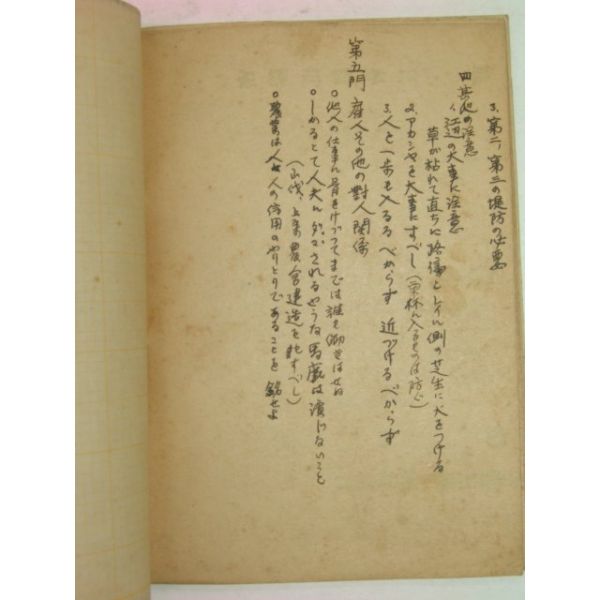 3、第二、第三の堤防の必要
四 其他の注意
1、江辺の火事に注意
草が枯れて直ちに 路傍と レイル側の芝生に火をつける
2、アカシヤを大事にすべし(栗林に入るものは防ぐ)
3、人を一歩も入るるべからず 近づけるべからず
第五門 雇人その他の對人関係
○他人の仕事に骨をけづつてまでは誰も働きはせぬ
○しめるとて人夫にダマされるやうな馬鹿は演じないこと
(山伐、上手の農舎建造を すべし)
○農業は人と人の信用のやりとりであることを 銘せよ